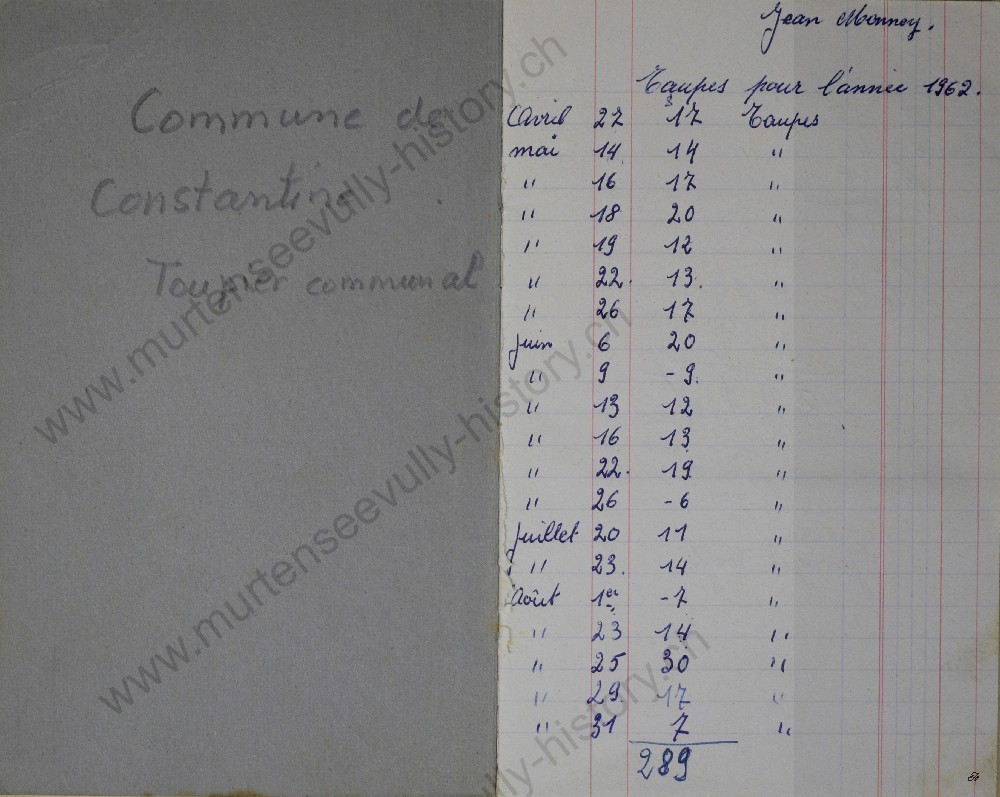 Commune de
Constantine
Taupier communal
Jean Monney.
Taupes pour l'année 1962.
Avril 27 17 Taupes
mai 14 14 "
" 16 17 "
" 18 20 "
" 19 12 "
" 22. 13. "
" 26 17 "
juin 6 20 "
" 9 -9. "
" 13 12 "
" 16 13 "
" 22. 19 "
" 26 -6 "
juillet 20 11 "
" 23. 14 "
Août 1er -7 "
" 23 14 "
" 25 30 "
" 29. 17 "
" 31 7 "
289
www.murtenseevully-history.ch
www.murtenseevully-history.ch